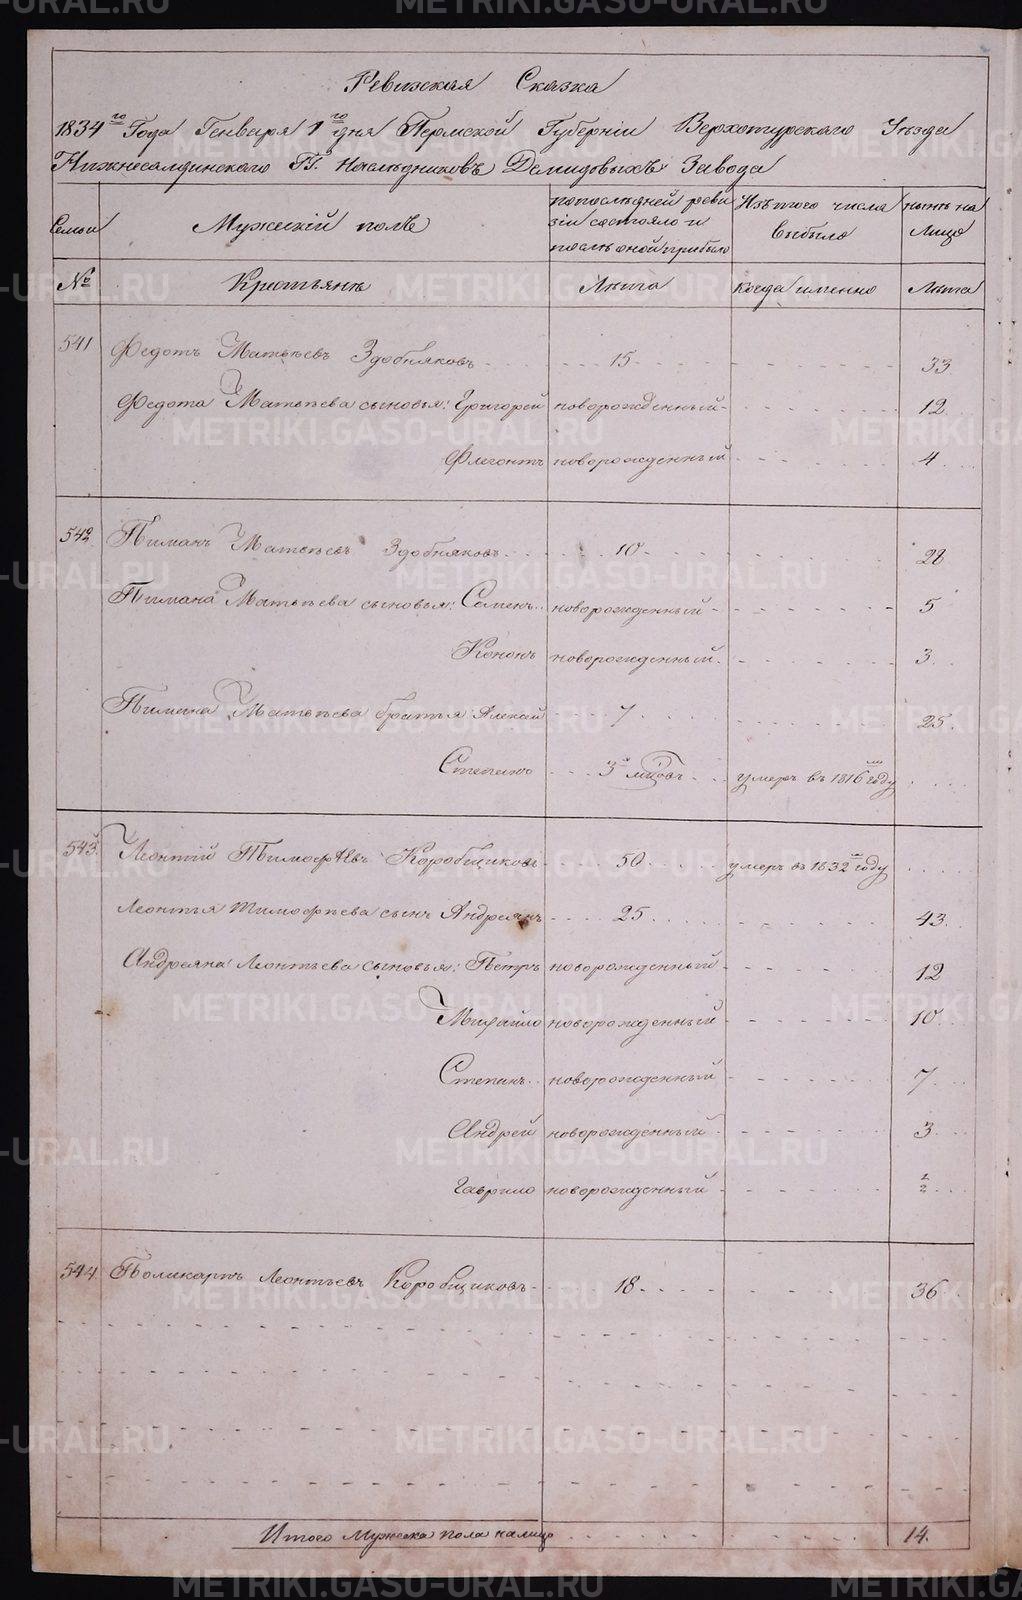 METRIKI.GASO-URAL.RU
Ревизская Сказка
1834го Года Генваря 1го дня Пермской Губерніи Верхотурскаго Уѣзда
Нижнесалдинскаго ГГ. Наслѣдниковъ Демидовыхъ Завода
Семьи Мужескій полъ попослѣдней ревизіи состояло и послѣ оной прибыло Изъ того числа выбыло нынѣ на Лицо
№ Крестьянъ Лѣта когда именно Лѣта
541 Федотъ Матвѣевъ Здобняковъ 15 33
Федота Матвѣева сыновья: Григорей новорожденный 12
Флегонтъ новорожденный 4
542 Пиманъ Матвѣевъ Здобняковъ 10 28
Пимана Матвѣева сыновья: Семенъ новорожденный 5
Кононъ новорожденный 3
Пимана Матвѣева братья Алексей 7 25
Степанъ 3й мцовъ умеръ въ 1816мъ году
543 Леонтій Тимофѣевъ Коробщиковъ 50 умеръ въ 1832мъ году
Леонтья Тимофѣева сынъ Андреянъ 25 43
Андреяна Леонтьева сыновья: Петръ новорожденный 12
Михайло новорожденный 10
Степанъ новорожденный 7
Андрей новорожденный 3
Гаврило новорожденный 1/2
544 Поликарпъ Леонтьевъ Коробщиковъ 18 36
Итого Мужеска пола налицо 14.